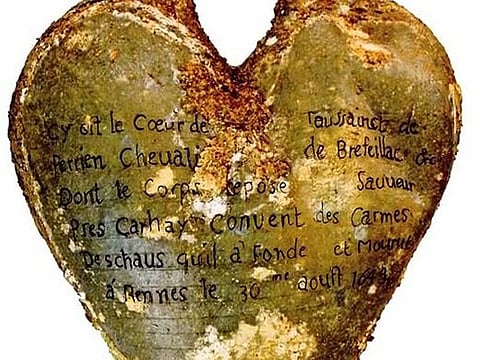 Cy Git le Cœur de Toussainct de
Perrien Cheuali de Brefeillac
Dont le Corps Repose Sauueur
Pres Carhay Convent des Carmes
Deschaus quil a Fonde et Mourut
á Rennes le 30me aoust